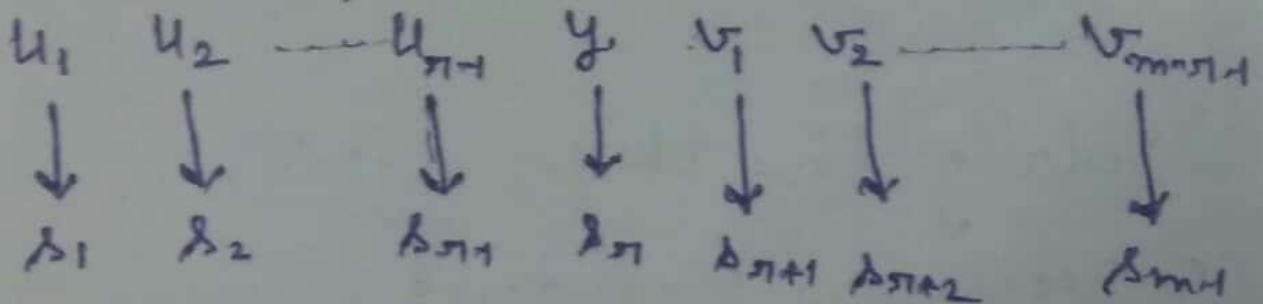 u₁ u₂ —— uᵣ₋₁ y v₁ v₂ —— vₘ₋ᵣ₋₁
↓ ↓ ↓ ↓ ↓ ↓ ↓
s₁ s₂ sᵣ₋₁ sᵣ sᵣ₊₁ sᵣ₊₂ sₘ₋₁